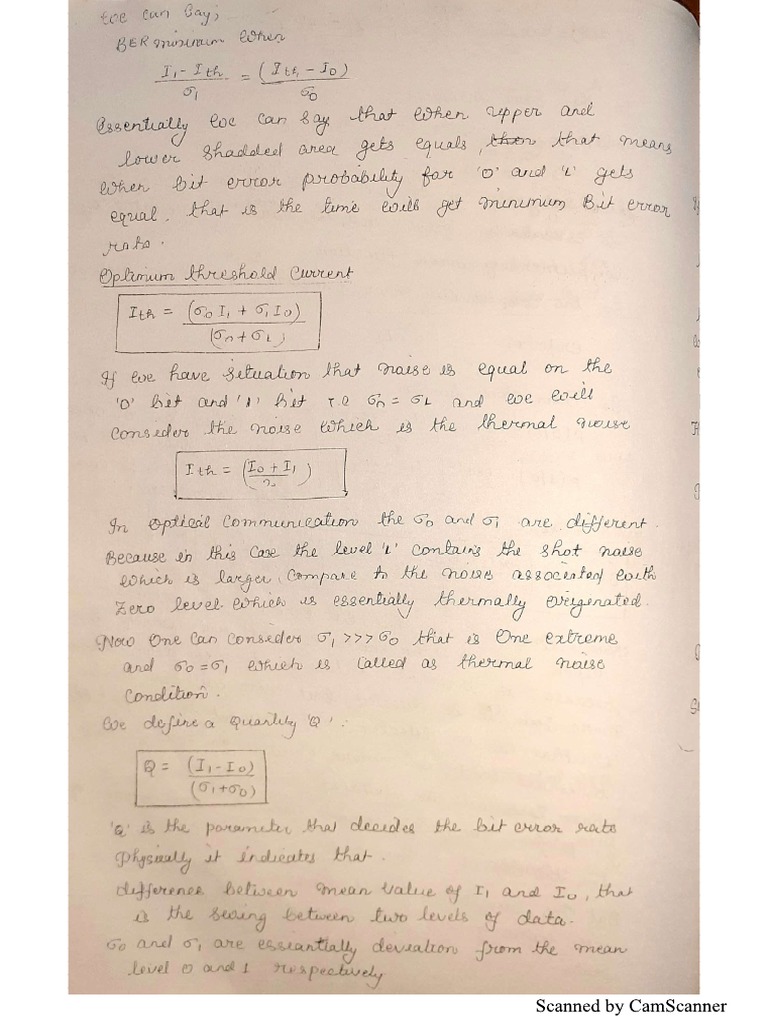 we can say,
BER minimum when
I1 - Ith / σ1 = (Ith - I0) / σ0
Essentially we can say that when upper and
lower shadded area gets equals, then that means
when bit error probability for '0' and '1' gets
equal, that is the time will get minimum Bit error
rate.
Optimum threshold current
Ith = (σ0 I1 + σ1 I0) / (σ0 + σ1)
If we have situation that noise is equal on the
'0' bit and '1' bit i.e σ0 = σ1 and we will
consider the noise which is the thermal noise
Ith = (I0 + I1 / 2)
In optical communication the σ0 and σ1 are different.
Because in this case the level '1' contains the shot noise
which is larger compare to the noise associated with
zero level which is essentially thermally origenated.
Now one can consider σ1 >>> σ0 that is one extreme
and σ0 = σ1 which is called as thermal noise
condition.
We define a quantity 'Q' :
Q = (I1 - I0) / (σ1 + σ0)
'Q' is the parameter that decides the bit error rate
Physically it indicates that.
difference between mean value of I1 and I0, that
is the swing between two levels of data.
σ0 and σ1 are essiantially deviation from the mean
level 0 and 1 respectively
Scanned by CamScanner